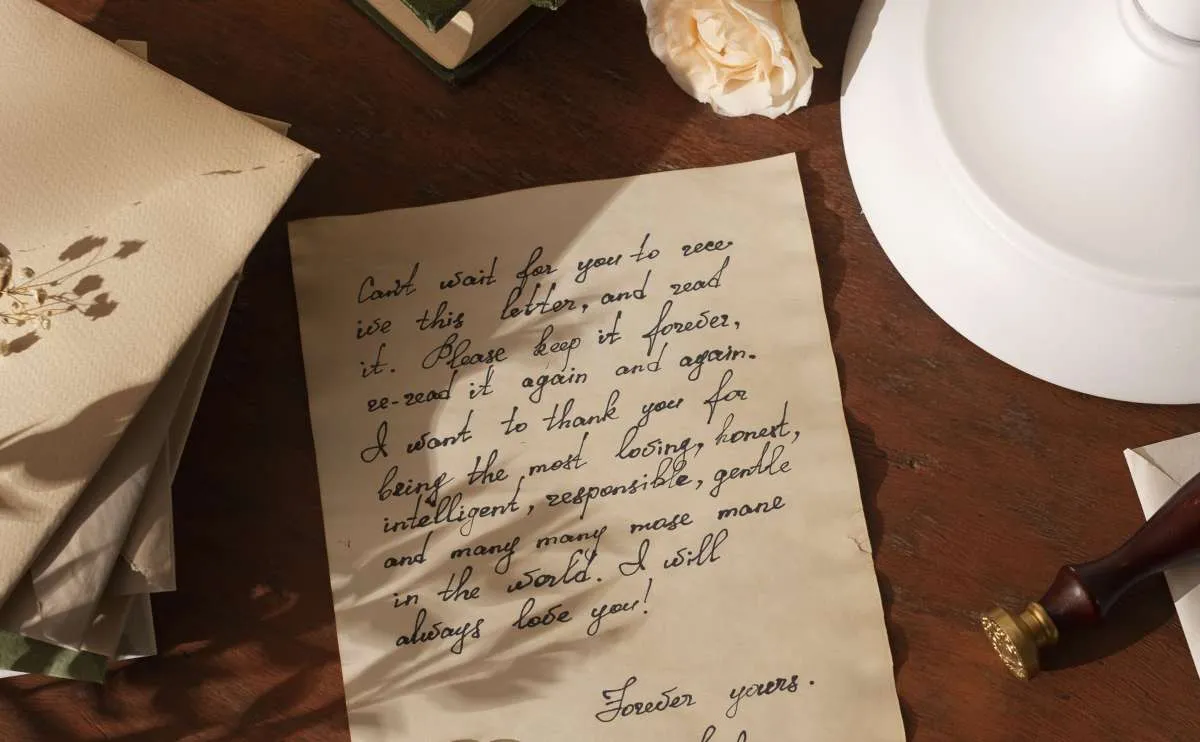 Can't wait for you to rece
ive this letter, and read
it. Please keep it forever,
re-read it again and again.
I want to thank you for
being the most loving, honest,
intelligent, responsible, gentle
and many many more mane
in the world. I will
always love you!
Forever yours.